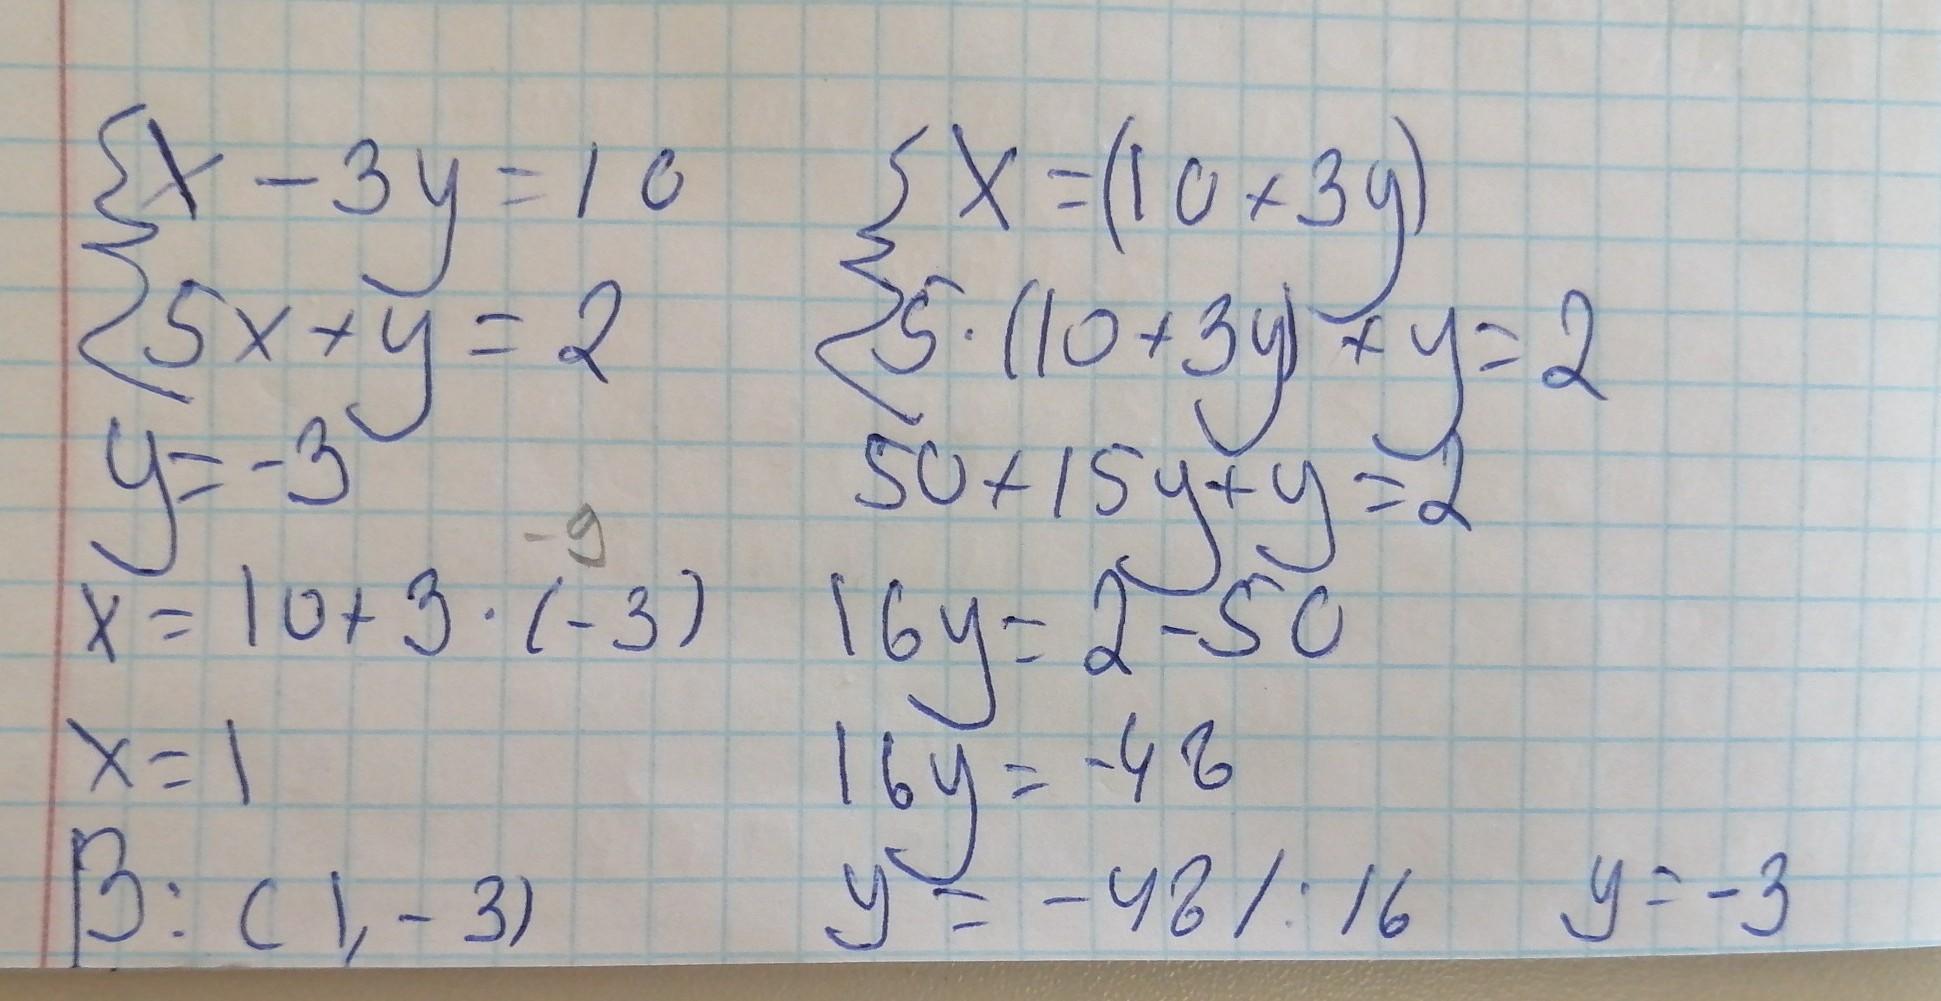 {x - 3y = 10
5x + y = 2
y = -3
-9
x = 10 + 3 · (-3)
x = 1
В: (1, -3)
{x = (10 + 3y)
5 · (10 + 3y) + y = 2
50 + 15y + y = 2
16y = 2 - 50
16y = -48
y = -48 /: 16 y = -3